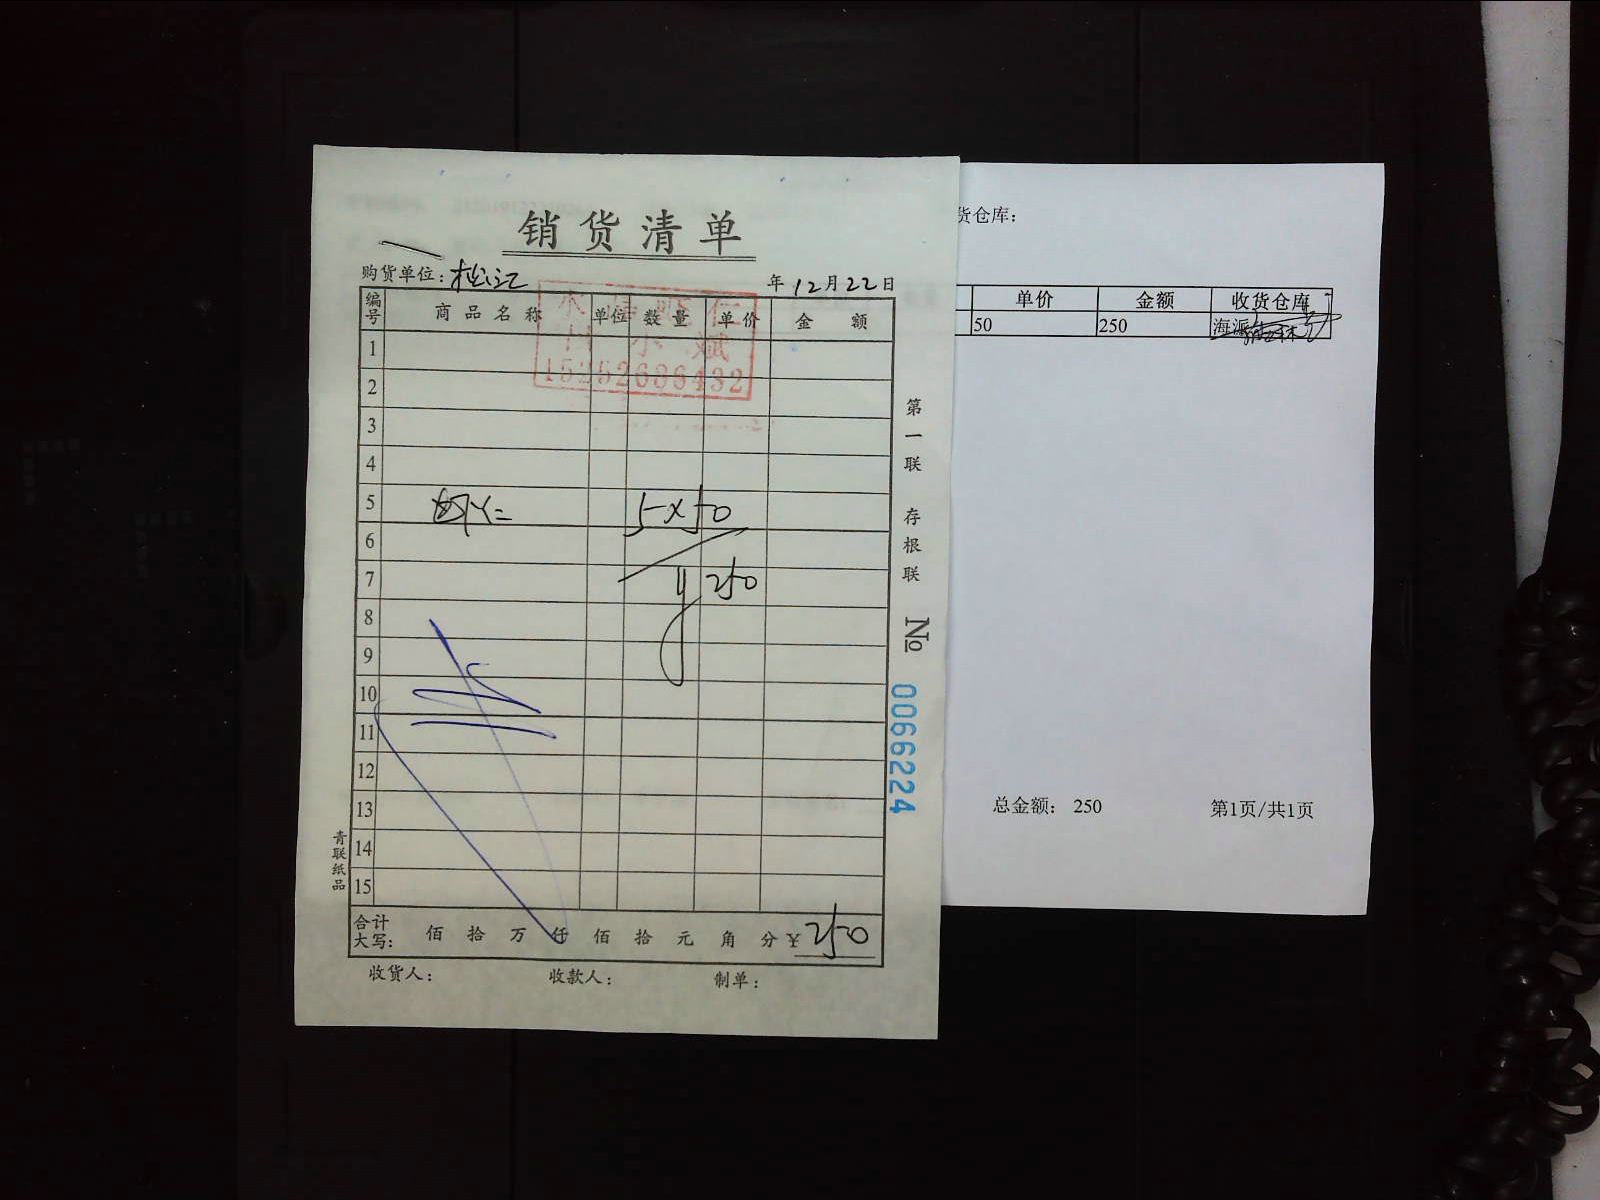 销货清单
购货单位：松江 年12月22日
编号 商品名称 单位 数量 单价 金额
15252686432
1
2
3
4
5 5×50
6
7 250
8
9
10
11
12
13
14
15
合计大写： 佰 拾 万 仟 佰 拾 元 角 分 ¥250
收货人： 收款人： 制单：
青联纸品
第一联 存根联
№ 0066224
货仓库：
单价 金额 收货仓库
50 250 海派
总金额： 250 第1页/共1页